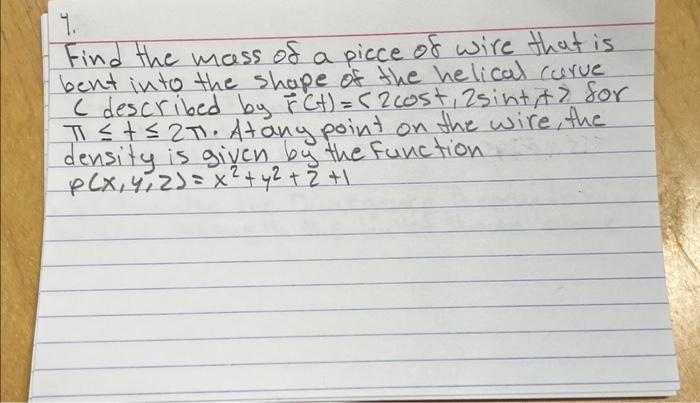 4.
Find the mass of a piece of wire that is
bent into the shape of the helical curve
C described by r⃗(t)=<2cost, 2sint, t> for
π≤t≤2π. At any point on the wire, the
density is given by the function
ρ(x,y,z)=x²+y²+z+1